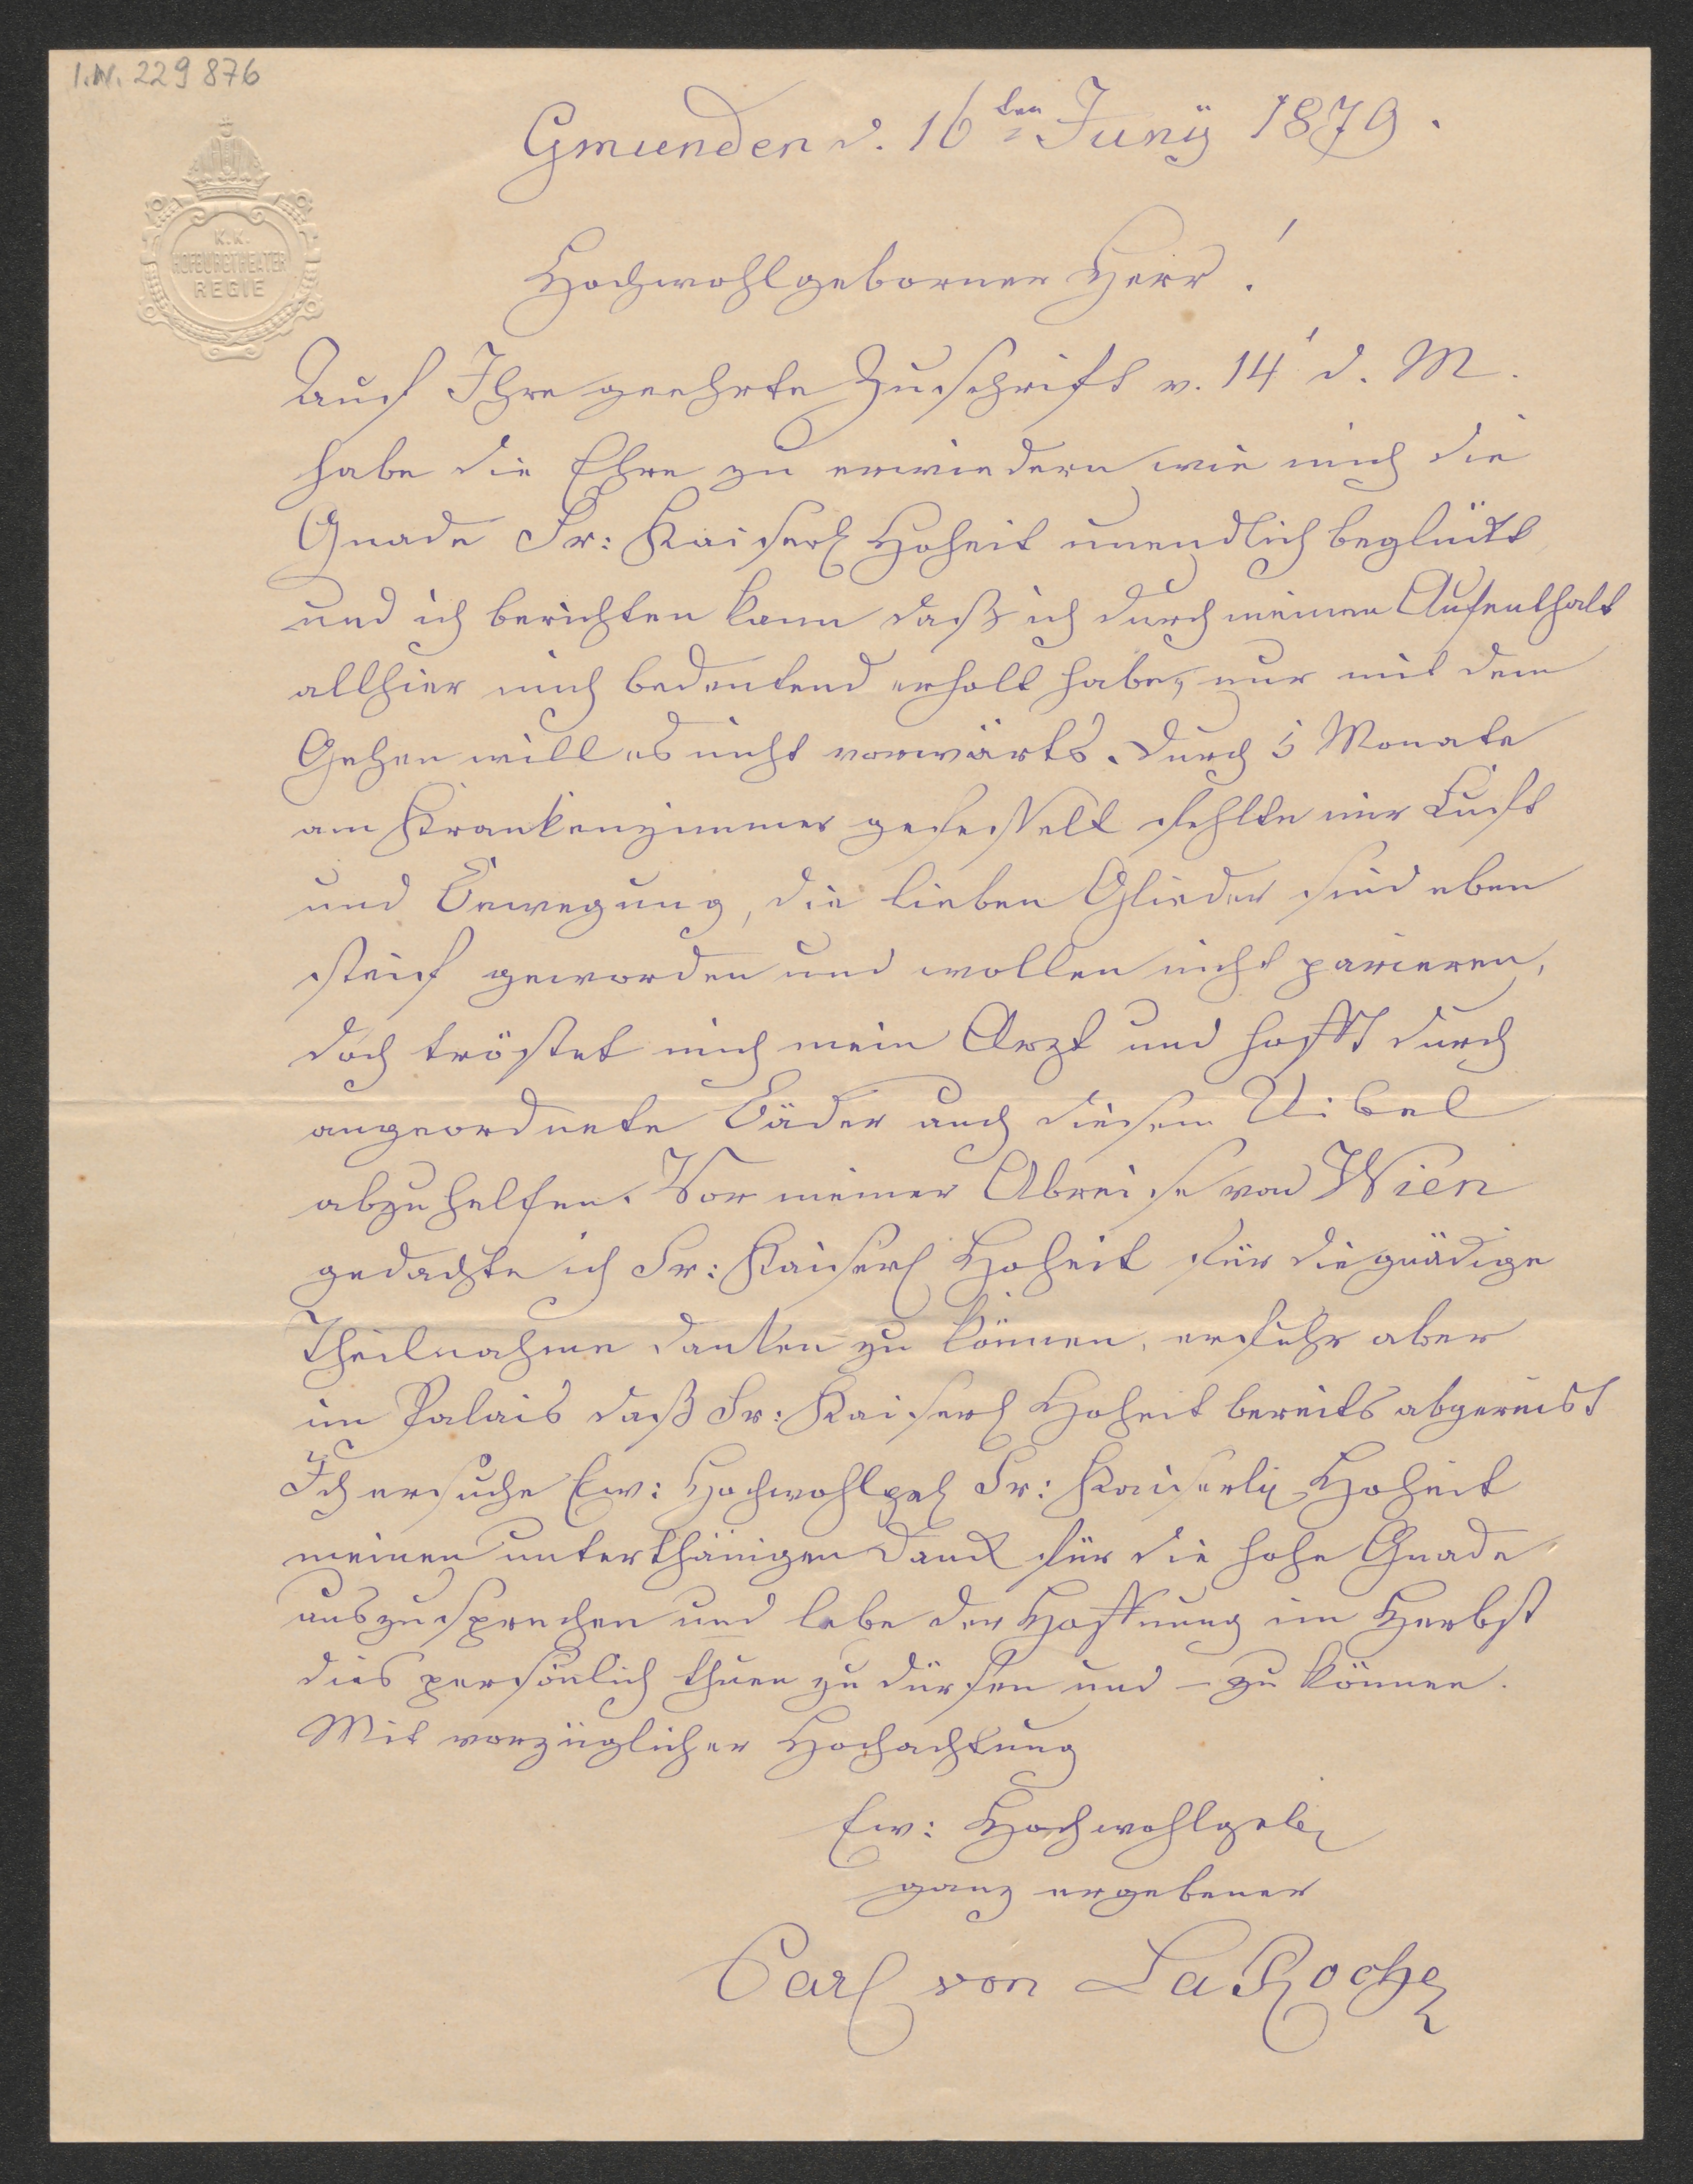 I.N. 229 876
Gmunden d. 16ten Juny 1879.
K.K.
HOFBURGTHEATER
REGIE
Hochwohlgeborner Herr!
Auf Ihre geehrte Zuschrift v. 14' d. M.
habe die Ehre zu erwiedern wie mich die
Gnade Sr: Kaiserl Hoheit unendlich beglückt
und ich berichten kann daß ich durch meinen Aufenthalt
allhier mich bedeutend erholt habe, nur mit dem
Gehen will es nicht vorwärts. Durch 5 Monate
am Krankenzimmer gefesselt fehlte mir Luft
und Bewegung, die lieben Glieder sind eben
steif geworden und wollen nicht parieren,
doch tröstet mich mein Arzt und hofft durch
angeordnete Bäder auch diesem Uibel
abzuhelfen. Vor meiner Abreise von Wien
gedachte ich Sr: Kaiserl Hoheit für die gnädige
Theilnahme danken zu können, erfuhr aber
im Palais daß Sr: Kaiserl Hoheit bereits abgereist
Ich ersuche Ew: Hochwohlgeb Sr: Kaiserlig Hoheit
meinen unterthänigen Dank für die hohe Gnade
auszusprechen und lebe der Hoffnung im Herbst
dies persönlich thuen zu dürfen und – zu können.
Mit vorzüglicher Hochachtung
Ew: Hochwohlgeb
ganz ergebener
Carl von LaRoche